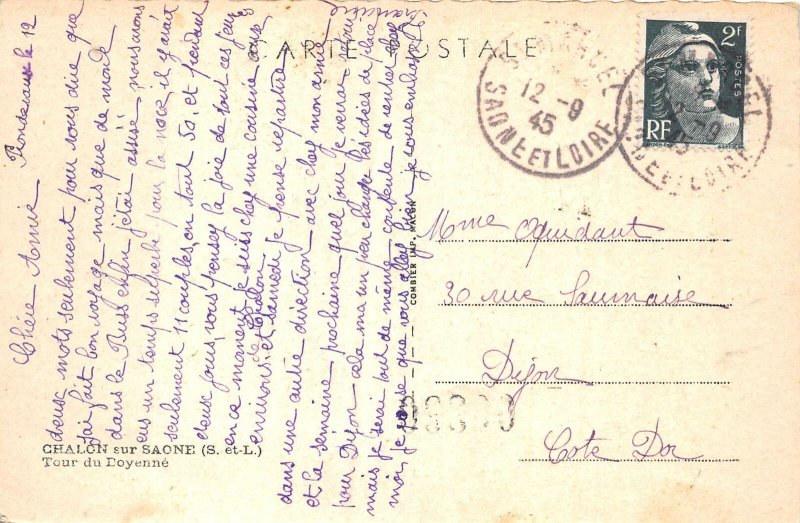 CARTE POSTALE
le 12
Chère Amie
deux mots seulement pour vous dire que
j'ai fait bon voyage, mais que de monde
dans le j'étai assise, nous avons
eus un temps superbe pour la noce il y avait
seulement 11 couples, en tout 50, et pendant
deux jours, vous pensez la joie de tout ces jeunes
en ce moment je suis chez une cousine aux
environs de Chalon et samedi je pense repartire
dans une autre direction avec chez mon amie
et la semaine prochaine quel jour je verrai pour
pour Dijon, cela m'a un peu changer les idées de place
mais je serai tout de même contente de rentrer chez
moi, je pense que vous allez bien je vous embrasse
COMBIER IMP. MACON
CHALON sur SAONE (S. et-L.)
Tour du Doyenné
12 -9
45
SAONE ET LOIRE
2F
POSTES
RF
12 -9
45
SAONE ET LOIRE
Mme Oquidant
30 rue Saumaise
Dijon
Cote Dor